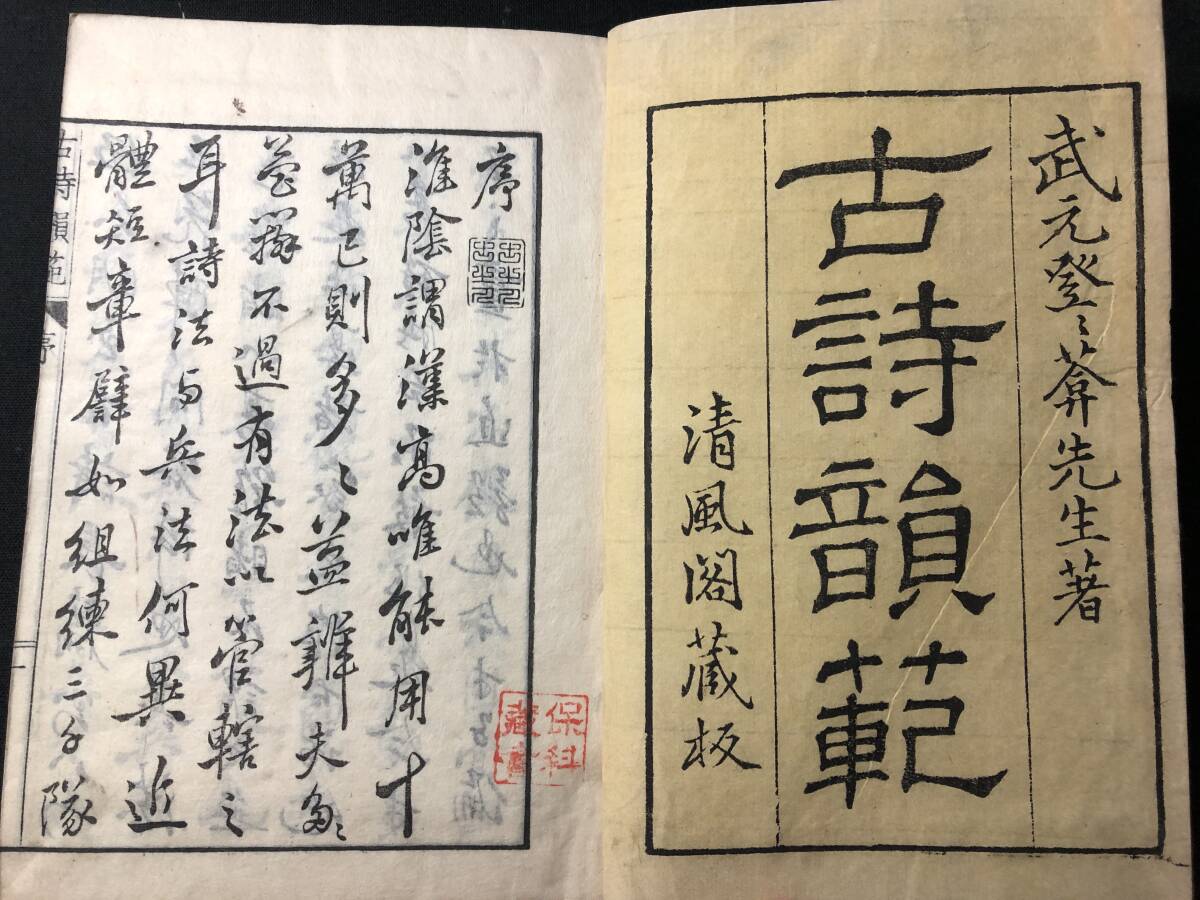 武元登〻菴先生著
古詩韻範
清風閣蔵板
序
淮陰謂漢高唯能用十
萬已則多〻益辦夫多〻
益辦不過有法以管轄之
耳詩法与兵法何異近
體短章譬如組練三千隊
古詩韻範
序
一
保科
蔵書